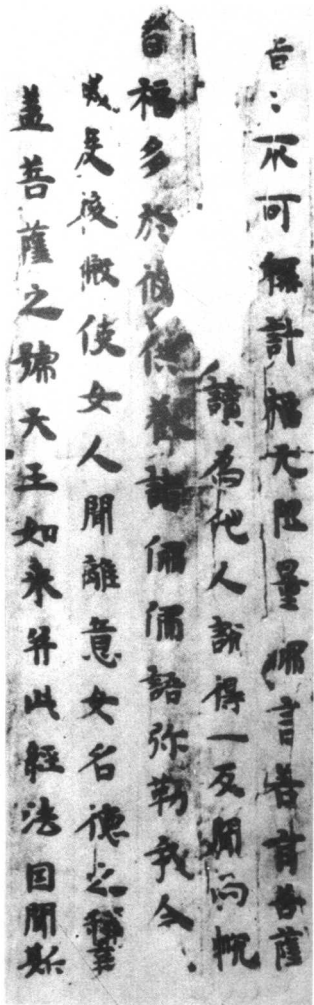 不可稱計福无限量佛言善哉菩薩
讀為他人說得一反聞向
福多於彼供養諸佛佛語弥勒我今
是後使女人聞離意女名德之稱
盖菩薩之號天王如来并此經法因聞斯